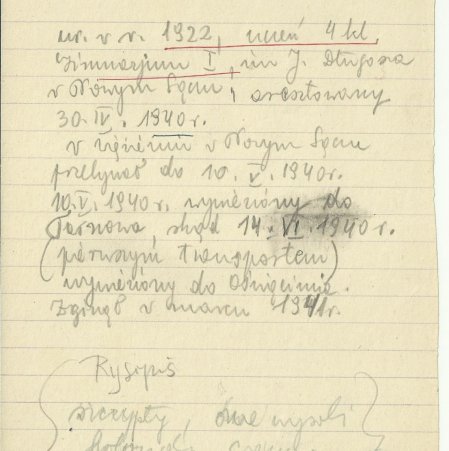 ur. w r. 1922, uczeń 4 kl.
Gimnazjum I, im J. Długosza
w Nowym Sączu, aresztowany
30. IV. 1940 r.
w więzieniu w Nowym Sączu
przebywał do 10. V. 1940 r.
10. V. 1940 r. wywieziony do
Tarnowa, skąd 14. VI. 1940 r.
(pierwszym transportem)
wywieziony do Oświęcimia.
Zginął w marcu 1941 r.
Rysopis
szczupły, dwe wysoki